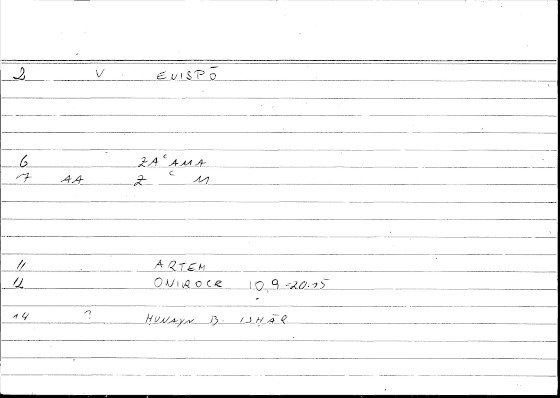 2 V ENISPŌ
6 ZAʿAMA
7 AA Z ʿ M
11 ARTEM
12 ONIROCR 10,9-20.15
14 ? HUNAYN B. ISḤĀQ